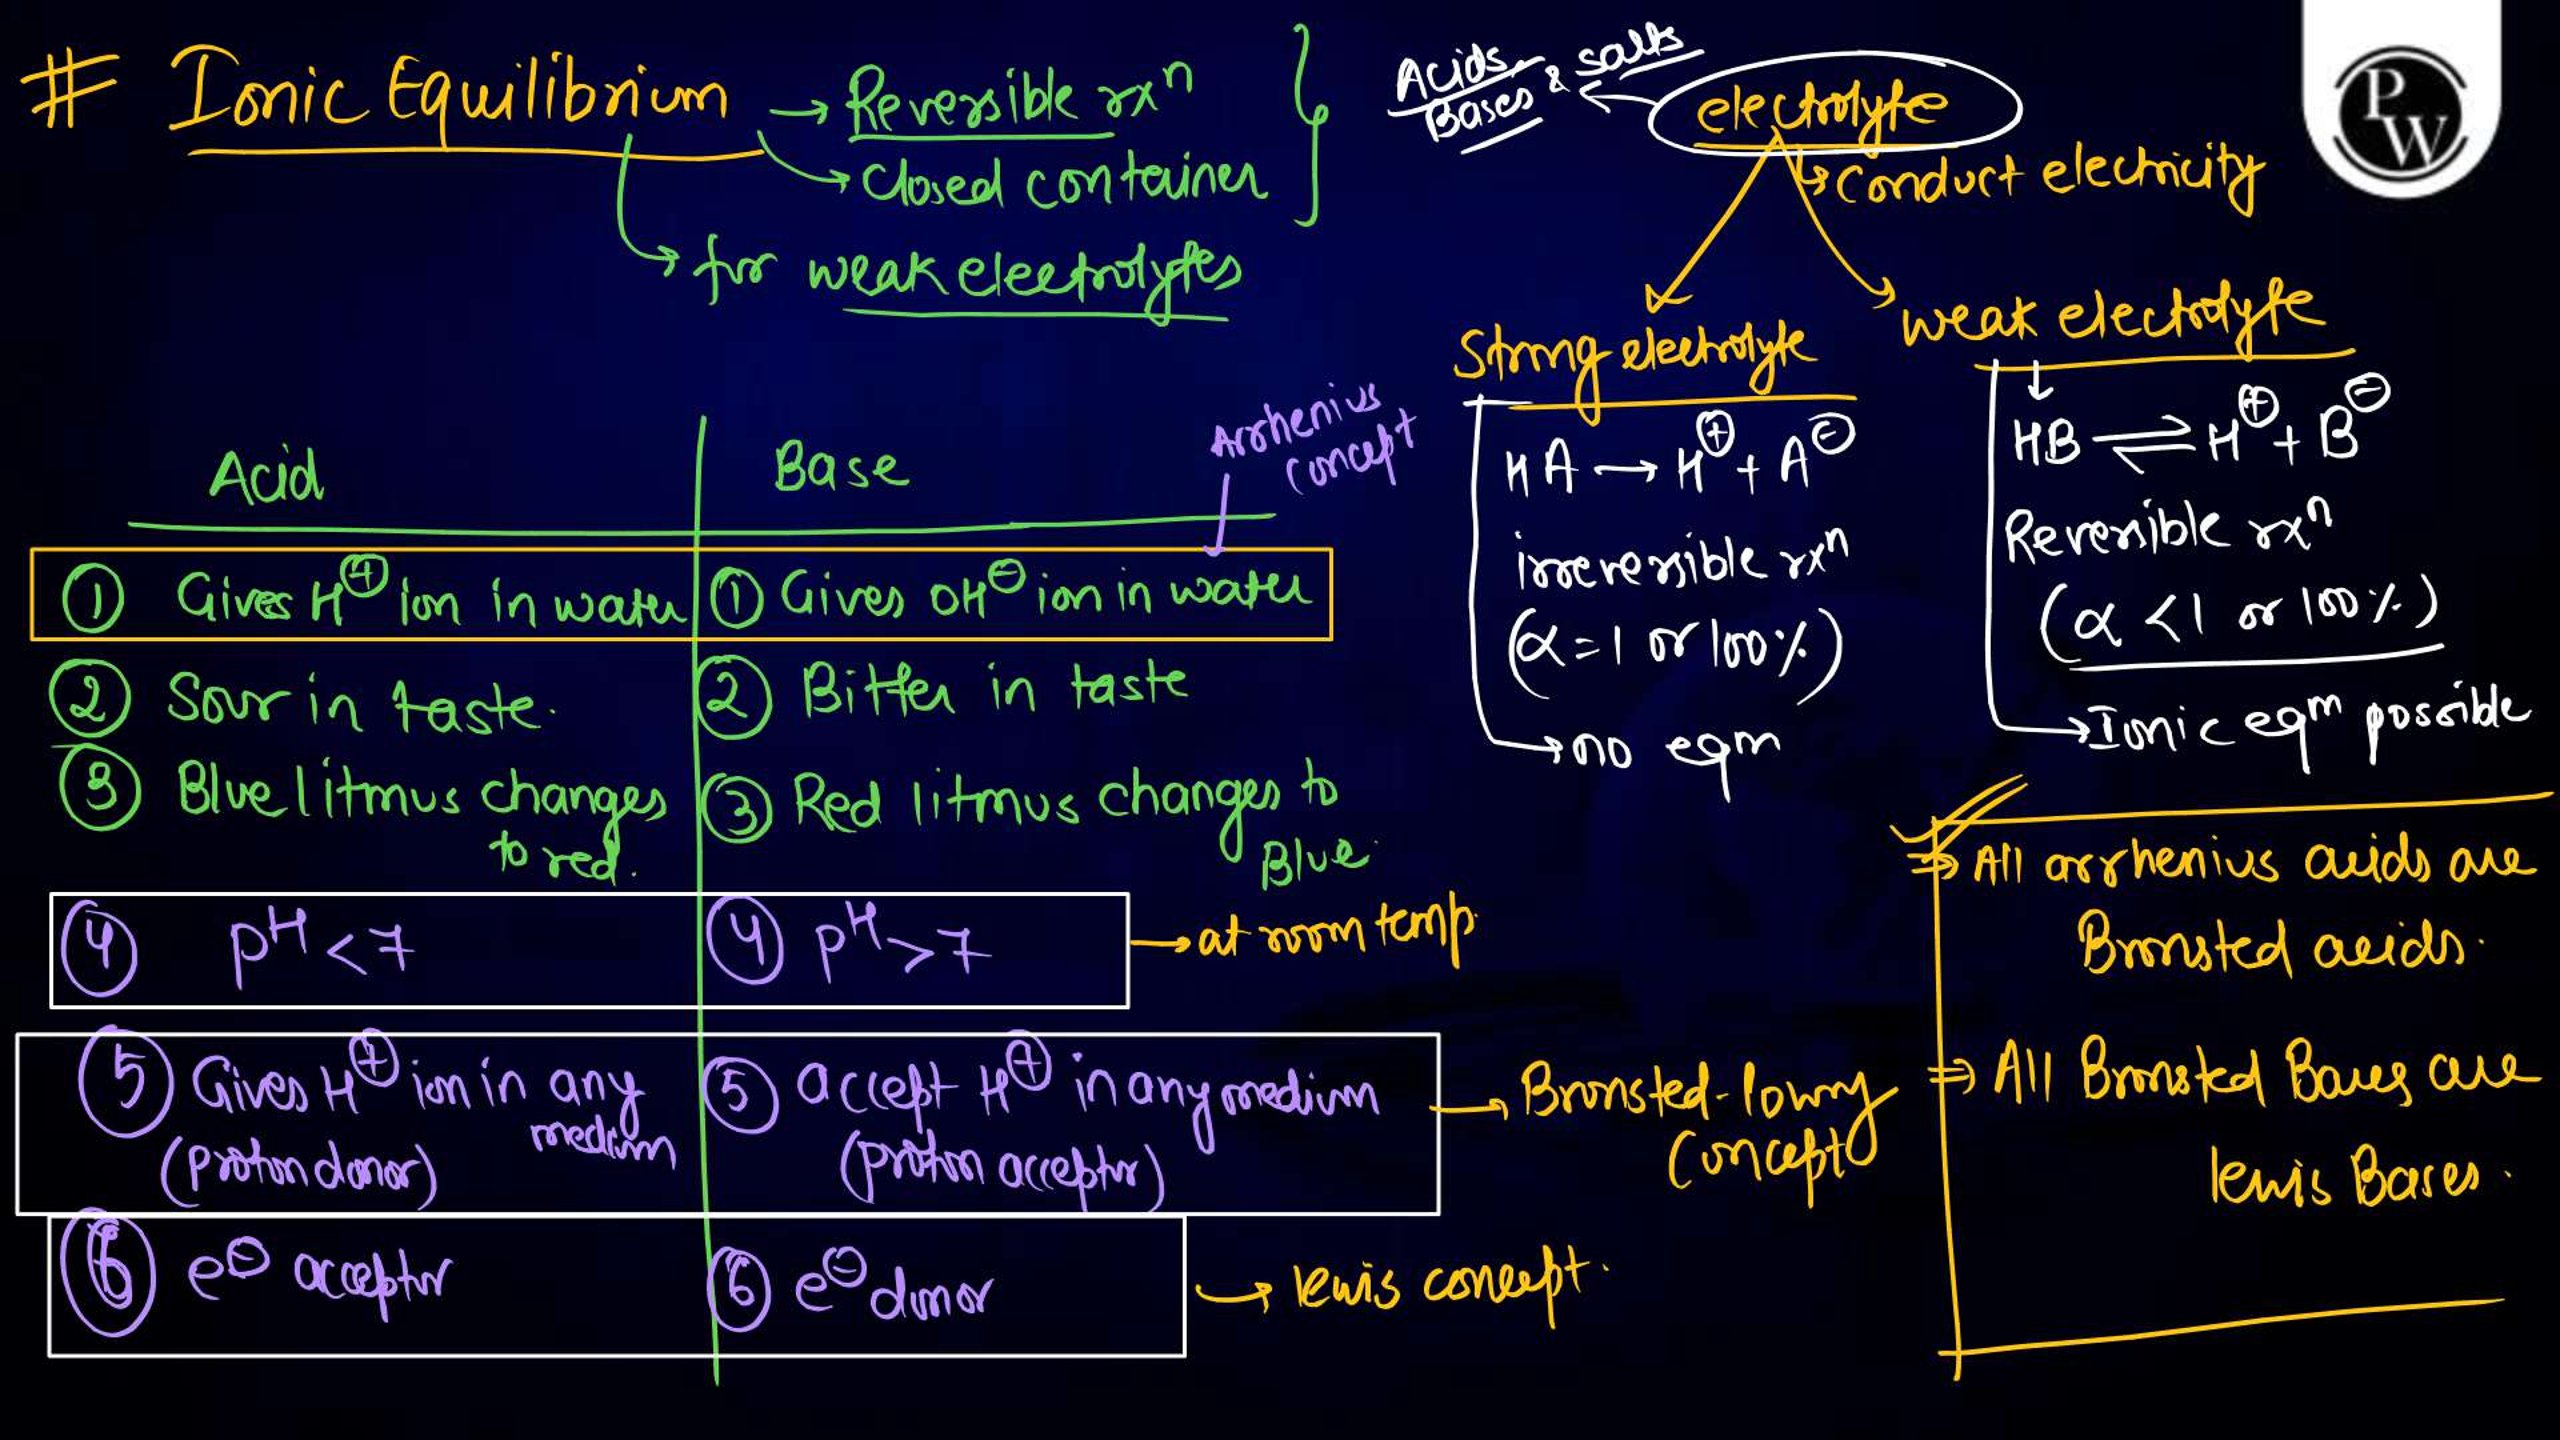 # Ionic Equilibrium → Reversible rxⁿ
→ closed container
→ for weak electrolytes
Acids, Bases & salts ← electrolyte
↳ conduct electricity
Strong electrolyte
HA → H⊕ + A⊖
irreversible rxⁿ
(α = 1 or 100%)
→ no eqm
weak electrolyte
↓
HB ⇌ H⊕ + B⊖
Reversible rxⁿ
(α < 1 or 100%)
→ Ionic eqᵐ possible
Acid | Base
Arrhenius concept
① Gives H⊕ ion in water | ① Gives OH⊖ ion in water
② Sour in taste. | ② Bitter in taste
③ Blue litmus changes to red. | ③ Red litmus changes to Blue.
④ pH < 7 | ④ pH > 7 → at room temp.
⑤ Gives H⊕ ion in any medium (proton donor) | ⑤ accept H⊕ in any medium (proton acceptor) → Bronsted-lowry concept
⑥ e⊖ acceptor | ⑥ e⊖ donor → lewis concept.
⇒ All arrhenius acids are
Bronsted acids.
⇒ All Bronsted Bases are
lewis Bases.
PW